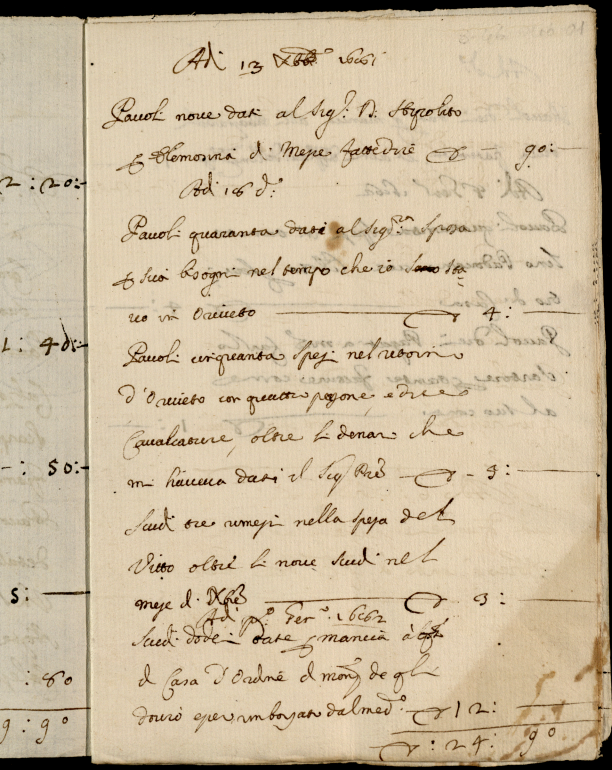 2 : 20:
1: 40:
-: 50:
5:
: 80
9 : 90
Adi 13 Xbre 1661
Pavoli nove dati al Sigr. D. Ippolito
p Elemosina di Messe fatte dire — 90:
Adi 18 do:
Pavoli quaranta dati al Sigra Sposa
p suoi bisogni nel tempo che io sta=
vo in Orvieto — 4:
Pavoli cinquanta spesi nel ritorno
d'Orvieto con quattro persone, e dieci
Cavalcature, oltre li denari che
mi haveva dati il Sig Pre — 5:
Scudi tre rimessi nella spesa del
Vitto oltre li nove scudi nel
mese di Xbre — 3:
Adi po. Genro. 1662
Scudi dodici date p mancia à
di Casa d'Ordine di de gli
dovrò esser rimborsato dal medo. — 12:
: 24: 90